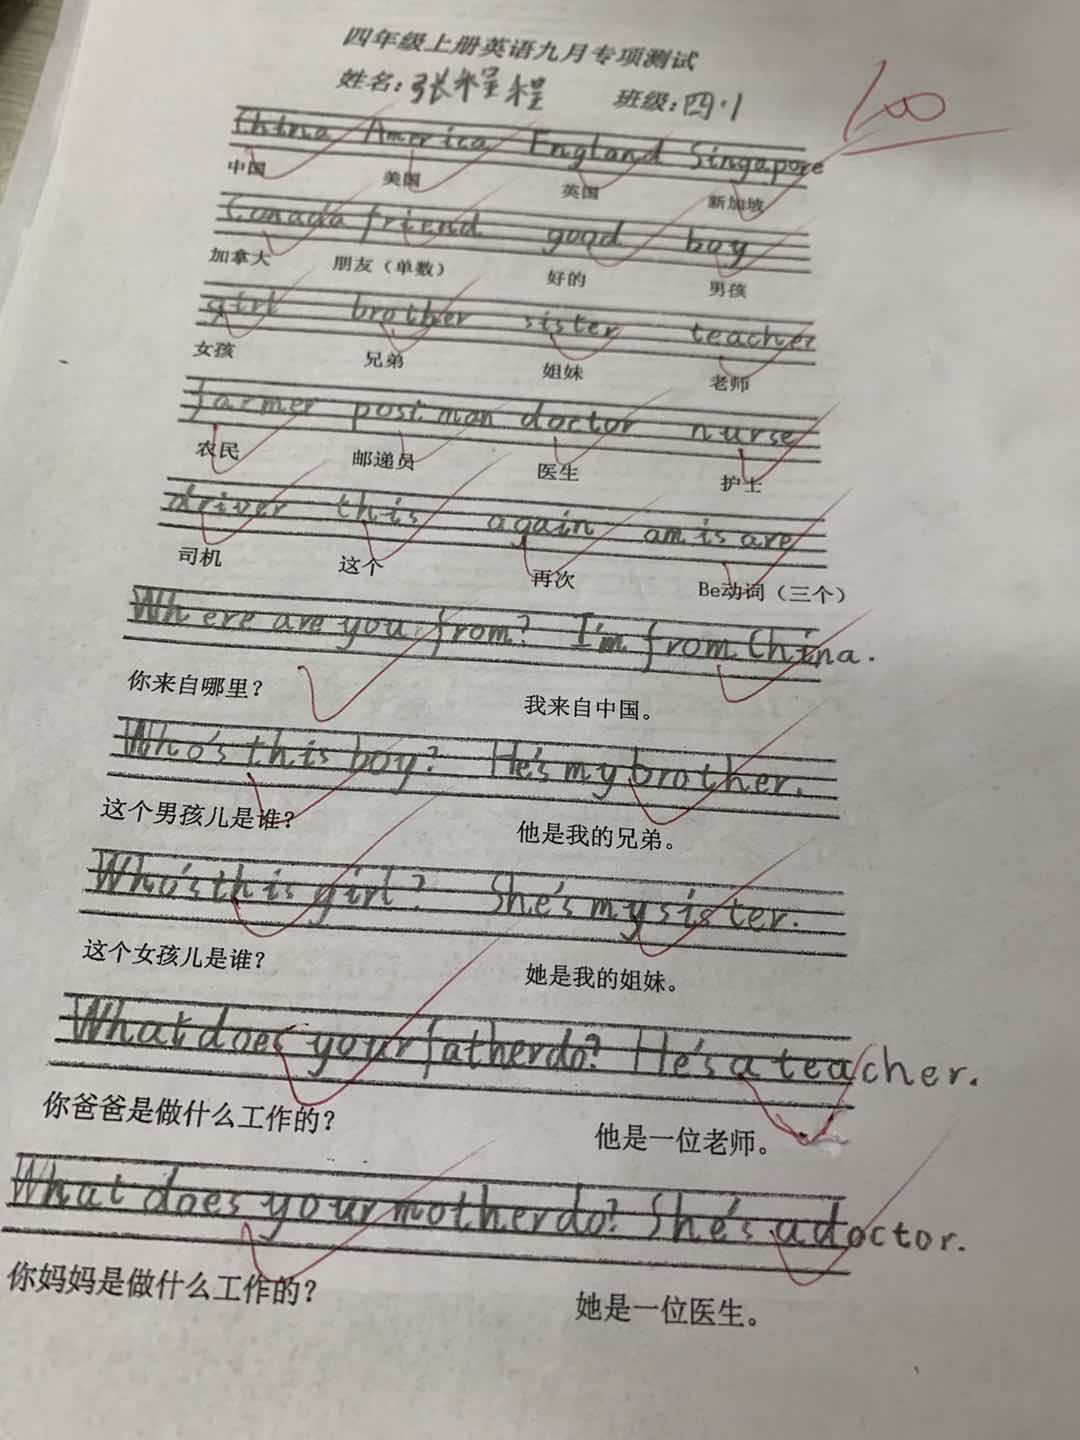 四年级上册英语九月专项测试
姓名：张程程 班级：四.1
100
China America England Singapore
中国 美国 英国 新加坡
Canada friend good boy
加拿大 朋友（单数） 好的 男孩
girl brother sister teacher
女孩 兄弟 姐妹 老师
farmer postman doctor nurse
农民 邮递员 医生 护士
driver this again am is are
司机 这个 再次 Be动词（三个）
Where are you from? I'm from China.
你来自哪里？ 我来自中国。
Who's this boy? He's my brother.
这个男孩儿是谁？ 他是我的兄弟。
Who's this girl? She's my sister.
这个女孩儿是谁？ 她是我的姐妹。
What does your father do? He's a teacher.
你爸爸是做什么工作的？ 他是一位老师。
What does your mother do? She's a doctor.
你妈妈是做什么工作的？ 她是一位医生。